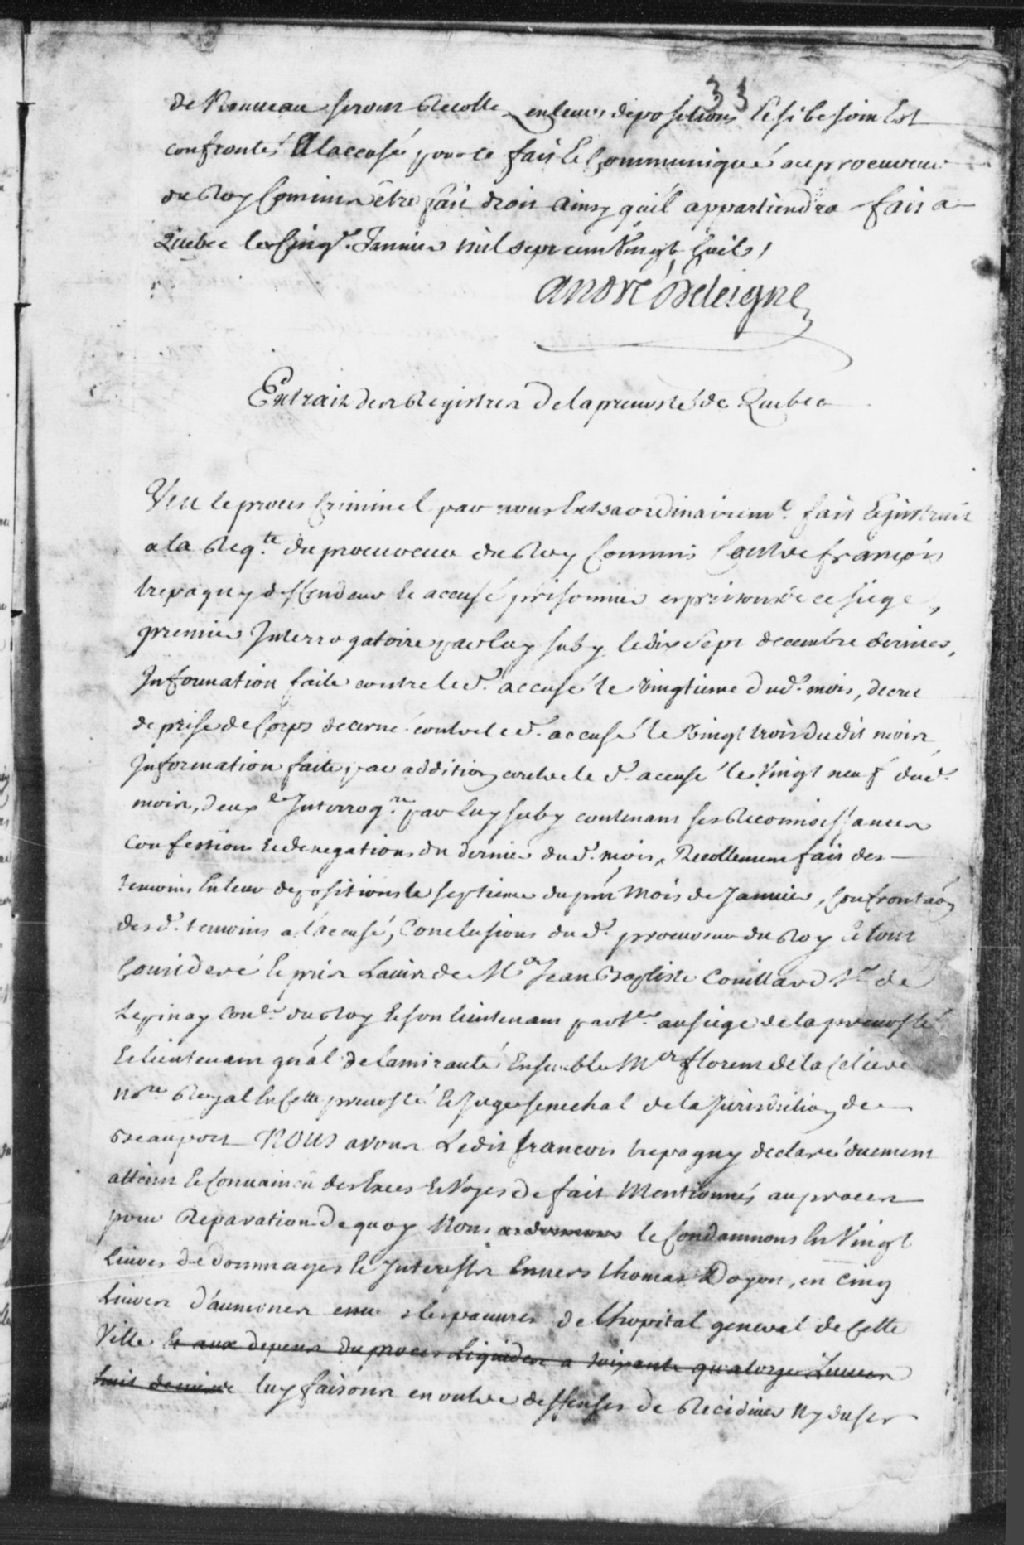 33
de Nouveau seront Recollé en leurs depositions et si besoin Est
confrontés a laccusé pour ce fait Et Communiqué au procureur
du Roy Commis être fait droit ainsy quil appartiendra fait a
Quebec le Cinq.e Janvier mil sept cent Vingt huit,
André Deleigne
Extrait des Registres de la prevosté de Quebec
Veu le proces Criminel par nous Extraordinairemt. fait Et instruit
a la Reqte. du procureur du Roy Commis Contre françois
trepagny deffendeur et accusé prisonnier es prisons de ce siege,
premier Interrogatoire par luy suby le dix sept decembre dernier,
Information faite contre led. accusé le vingtieme dud. mois, decret
de prise de Corps decerné contre led. accusé le Vingt trois dudit mois
Information faite par addition contre led. accusé le Vingt neuf dud.
mois, deuxe. Interrogre. par luy suby contenant ses Reconnoissances
Confessions et denegations du dernier dud. mois, Recollement fait des
temoins En leur depositions le septieme du pnt Mois de Janvier, Confrontaon
des d. temoins a l'accusé, Conclusions dud. procureur du Roy Et tout
Consideré Et pris Lavis de Me. Jean Baptiste Couillard Sr. de
Lepinay Conser. du Roy Et son lieutenant parter. au siege de la prevosté
Et lieutenant gnal de lamirauté Ensemble Me. florent de la Cetiere
nore. Royal En Cette prevosté Et Juge senechal de la Jurisdiction de
Beauport NOUS avons Ledit francois trepagny declaré duement
atteint Et Convaincu des Exces Et Voyes de fait Mentionnés au proces
pour Reparation de quoy Nous le Condamnons En Vingt
Livres de dommages Et Interests Envers thomas Doyon, en Cinq
Livres d'aumones enver les pauvres de Lhopital general de Cette
Ville et aux depens du proces Liquidés a soixante quatorze Livres
huit deniers luy faisons en outre deffenses de Recidiver Ny duser